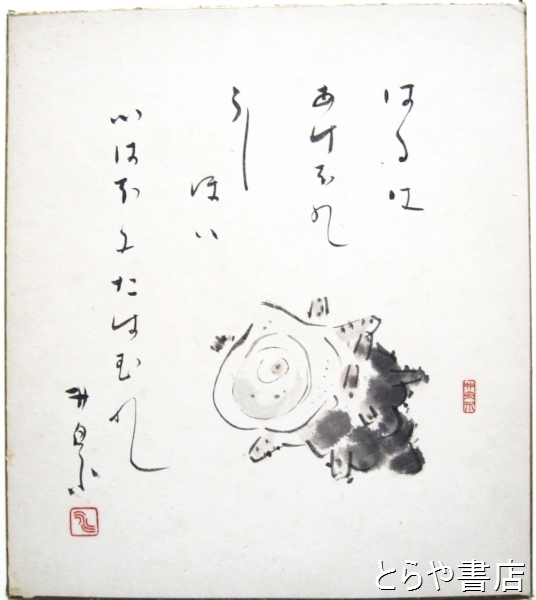 はるは
あけほの
うし
ほハ
いはほにたはむれ
井泉水
とらや書店